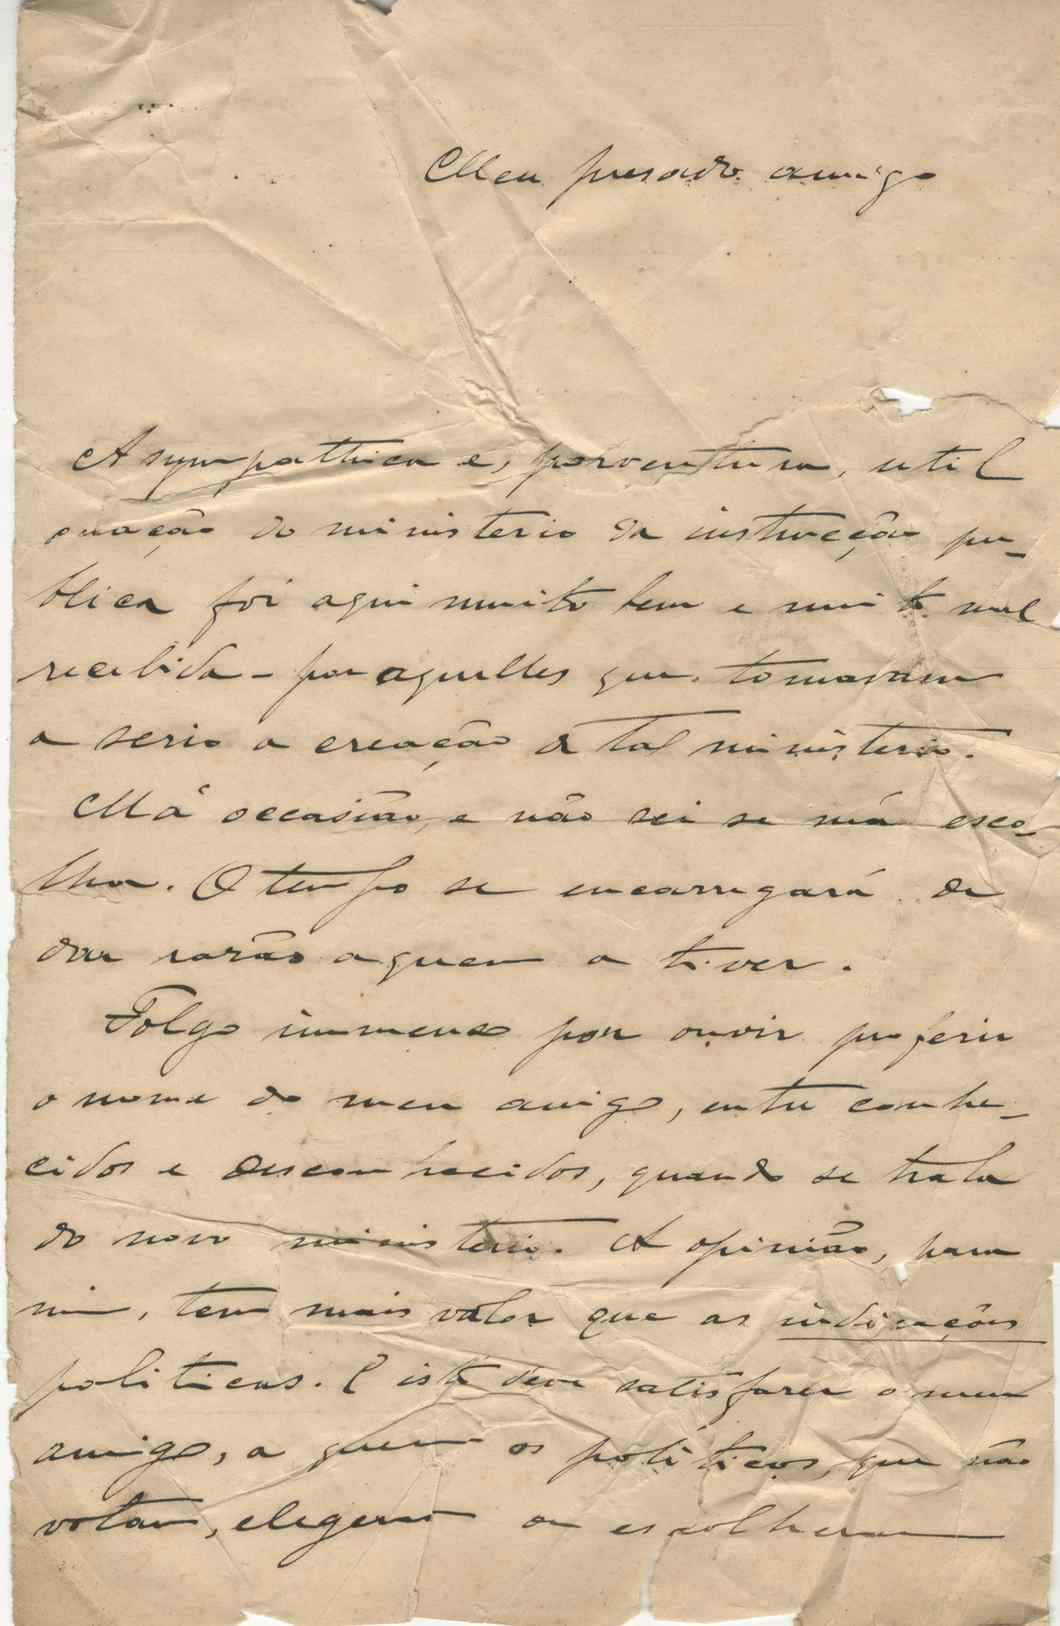 Meu presado amigo
A sympathica e, porventura, util
creação do ministerio da instrucção pu-
blica foi aqui muito bem e muito mal
recebida - por aquelles que tomavam
a serio a creação de tal ministerio.
Má occasião, e não sei se má esco-
lha. O tempo se encarregará de
dar rasão a quem a tiver.
Folgo immenso por ouvir proferir
o nome do meu amigo, entre conhe-
cidos e desconhecidos, quando se trata
do novo ministerio. A opinião, para
mim, tem mais valor que as indicações
politicas. E isto deve satisfazer o meu
amigo, a quem os politicos, que não
votam, elegeram ou escolheram